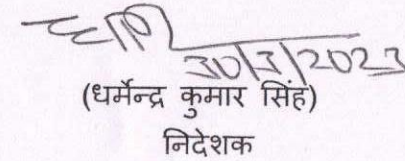 30/3/2023
(धर्मेन्द्र कुमार सिंह)
निदेशक